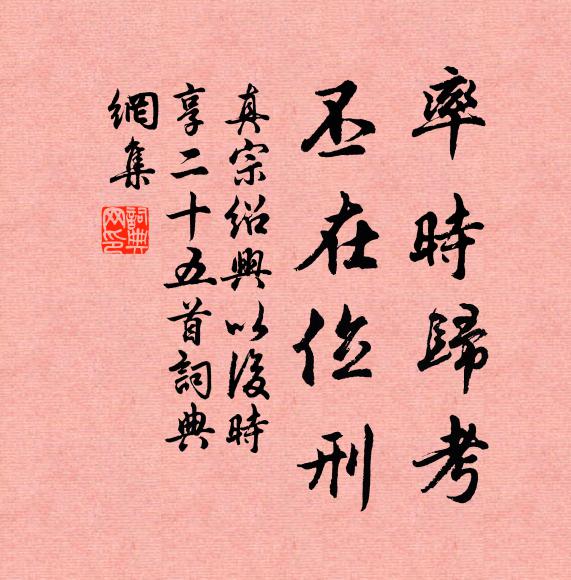 率時歸考
丕在位刑
真宗紹興以後時
享二十五首詞典
網集
詞典
网印